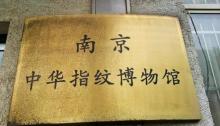 南京
中华指纹博物馆